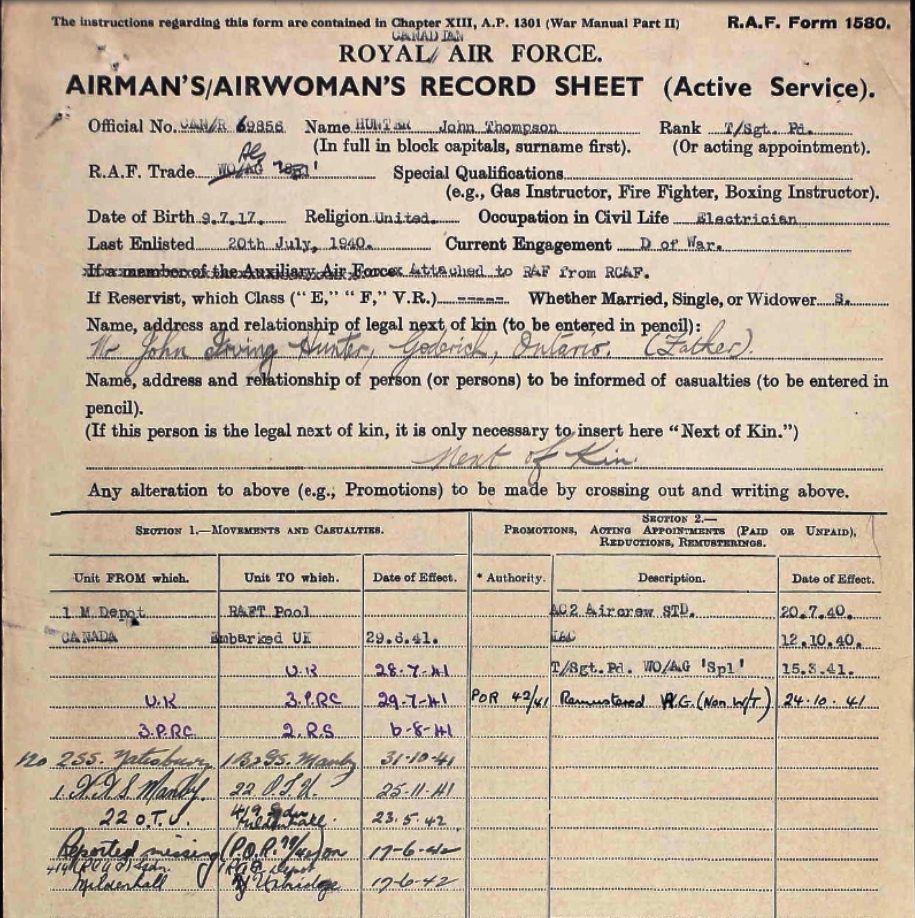 The instructions regarding this form are contained in Chapter XIII, A.P. 1301 (War Manual Part II) R.A.F. Form 1580.
CANADIAN
ROYAL AIR FORCE.
AIRMAN'S/AIRWOMAN'S RECORD SHEET (Active Service).
Official No. CAN/R 69856 Name HUNTER John Thompson Rank T/Sgt. Pd.
(In full in block capitals, surname first). (Or acting appointment).
AG
R.A.F. Trade WO/AG Special Qualifications
(e.g., Gas Instructor, Fire Fighter, Boxing Instructor).
Date of Birth 9.7.17. Religion United. Occupation in Civil Life Electrician
Last Enlisted 20th July, 1940. Current Engagement D of War.
If a member of the Auxiliary Air Force: Attached to RAF from RCAF.
If Reservist, which Class ("E," "F," V.R.) ----- Whether Married, Single, or Widower S.
Name, address and relationship of legal next of kin (to be entered in pencil):
Mr John Irving Hunter, Goderich, Ontario. (Father).
Name, address and relationship of person (or persons) to be informed of casualties (to be entered in
pencil).
(If this person is the legal next of kin, it is only necessary to insert here "Next of Kin.")
Next of Kin.
Any alteration to above (e.g., Promotions) to be made by crossing out and writing above.
SECTION 1.—MOVEMENTS AND CASUALTIES. SECTION 2.—
PROMOTIONS, ACTING APPOINTMENTS (PAID OR UNPAID),
REDUCTIONS, REMUSTERINGS.
Unit FROM which. Unit TO which. Date of Effect. * Authority. Description. Date of Effect.
1 M Depot RAFT Pool AC2 Aircrew STD. 20.7.40.
CANADA Embarked UK 29.6.41. LAC 12.10.40.
U.K 28-7-41 T/Sgt.Pd. WO/AG 'Spl' 15.3.41.
U.K 3.P.RC 29-7-41 POR 42/41 Remustered A.G. (Non W/T) 24-10-41
3.PRC 2.R.S 6-8-41
No 2 S.S. Yatesbury 1 B.&G.S. Manby 31-10-41
1. A.A.S Manby. 22 O.T.U. 25-11-41
22 O.T.U. 419 Sqdn Mildenhall. 23.5.42
Reported missing (P.O.R. 79/42) on 17-6-42
419 (RCAF) Sqdn. Mildenhall RAF Depot Uxbridge 17-6-42